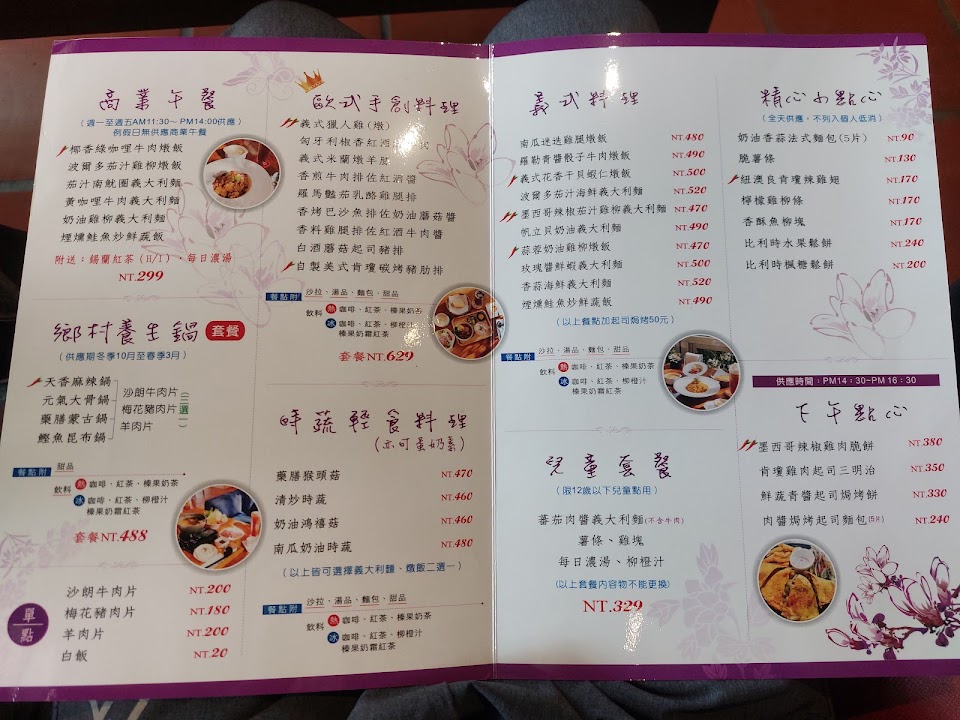 商業午餐
(週一至週五AM11:30~PM14:00供應)
例假日無供應商業午餐
椰香綠咖哩牛肉燉飯
波爾多茄汁雞柳燉飯
茄汁南魷圈義大利麵
黃咖哩牛肉義大利麵
奶油雞柳義大利麵
煙燻鮭魚炒鮮蔬飯
附送：錫蘭紅茶(H/I)，每日濃湯
NT.299
鄉村養生鍋 套餐
(供應期冬季10月至春季3月)
天香麻辣鍋
元氣大骨鍋
藥膳蒙古鍋
鰹魚昆布鍋
沙朗牛肉片
梅花豬肉片
羊肉片
(三選一)
餐點附 甜品
飲料 熱 咖啡、紅茶、榛果奶茶
冰 咖啡、紅茶、柳橙汁
榛果奶霜紅茶
套餐NT.488
單點
沙朗牛肉片 NT.200
梅花豬肉片 NT.180
羊肉片 NT.200
白飯 NT.20
歐式手創料理
義式獵人雞(燉)
匈牙利椒香紅酒
義式米蘭燉羊膝
香煎牛肉排佐紅酒醬
羅馬豔茄乳酪雞腿排
香烤巴沙魚排佐奶油蘑菇醬
香料雞腿排佐紅酒牛肉醬
白酒蘑菇起司豬排
自製美式肯瓊碳烤豬肋排
餐點附 沙拉、湯品、麵包、甜品
飲料 熱 咖啡、紅茶、榛果奶茶
冰 咖啡、紅茶、柳橙汁
榛果奶霜紅茶
套餐NT.629
時蔬輕食料理
(亦可蛋奶素)
藥膳猴頭菇 NT.470
清炒時蔬 NT.460
奶油鴻禧菇 NT.460
南瓜奶油時蔬 NT.480
(以上皆可選擇義大利麵、燉飯二選一)
餐點附 沙拉、湯品、麵包、甜品
飲料 熱 咖啡、紅茶、榛果奶茶
冰 咖啡、紅茶、柳橙汁
榛果奶霜紅茶
義式料理
南瓜迷迭雞腿燉飯 NT.480
羅勒青醬骰子牛肉燉飯 NT.490
義式花香干貝蝦仁燉飯 NT.500
波爾多茄汁海鮮義大利麵 NT.520
墨西哥辣椒茄汁雞柳義大利麵 NT.470
帆立貝奶油義大利麵 NT.490
蒜蓉奶油雞柳燉飯 NT.470
玫瑰醬鮮蝦義大利麵 NT.500
香蒜海鮮義大利麵 NT.520
煙燻鮭魚炒鮮蔬飯 NT.490
(以上餐點加起司焗烤50元)
餐點附 沙拉、湯品、麵包、甜品
飲料 熱 咖啡、紅茶、榛果奶茶
冰 咖啡、紅茶、柳橙汁
榛果奶霜紅茶
兒童套餐
(限12歲以下兒童點用)
蕃茄肉醬義大利麵(不含牛肉)
薯條、雞塊
每日濃湯、柳橙汁
(以上套餐內容物不能更換)
NT.329
精心小點心
(全天供應，不列入個人低消)
奶油香蒜法式麵包(5片) NT.90
脆薯條 NT.130
紐澳良肯瓊辣雞翅 NT.170
檸檬雞柳條 NT.170
香酥魚柳塊 NT.170
比利時水果鬆餅 NT.240
比利時楓糖鬆餅 NT.200
供應時間：PM14：30~PM16：30
下午點心
墨西哥辣椒雞肉脆餅 NT.380
肯瓊雞肉起司三明治 NT.350
鮮蔬青醬起司焗烤餅 NT.330
肉醬焗烤起司麵包(5片) NT.240